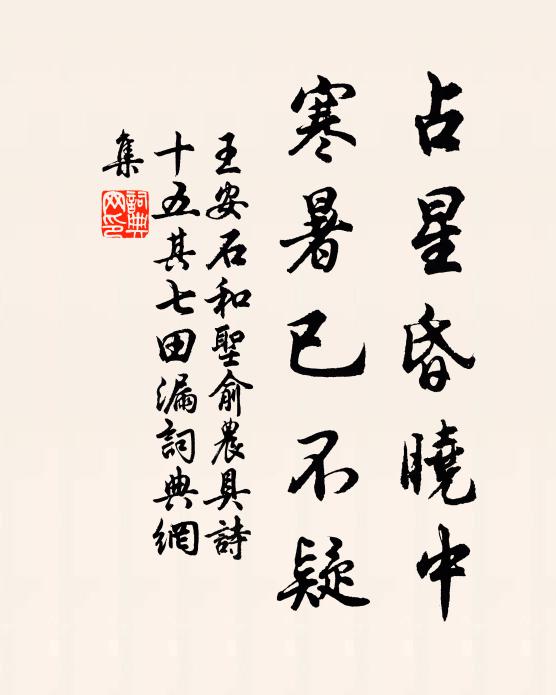 占星昏曉中
寒暑已不疑
王安石和聖俞農具詩
十五其七田漏詞典網
集
詞典
网印